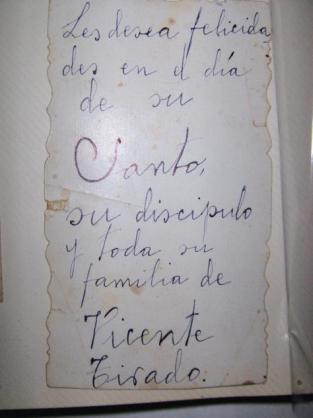 Les desea felicida
des en el día
de su
Santo,
su discipulo
y toda su
familia de
Vicente
Tirado.